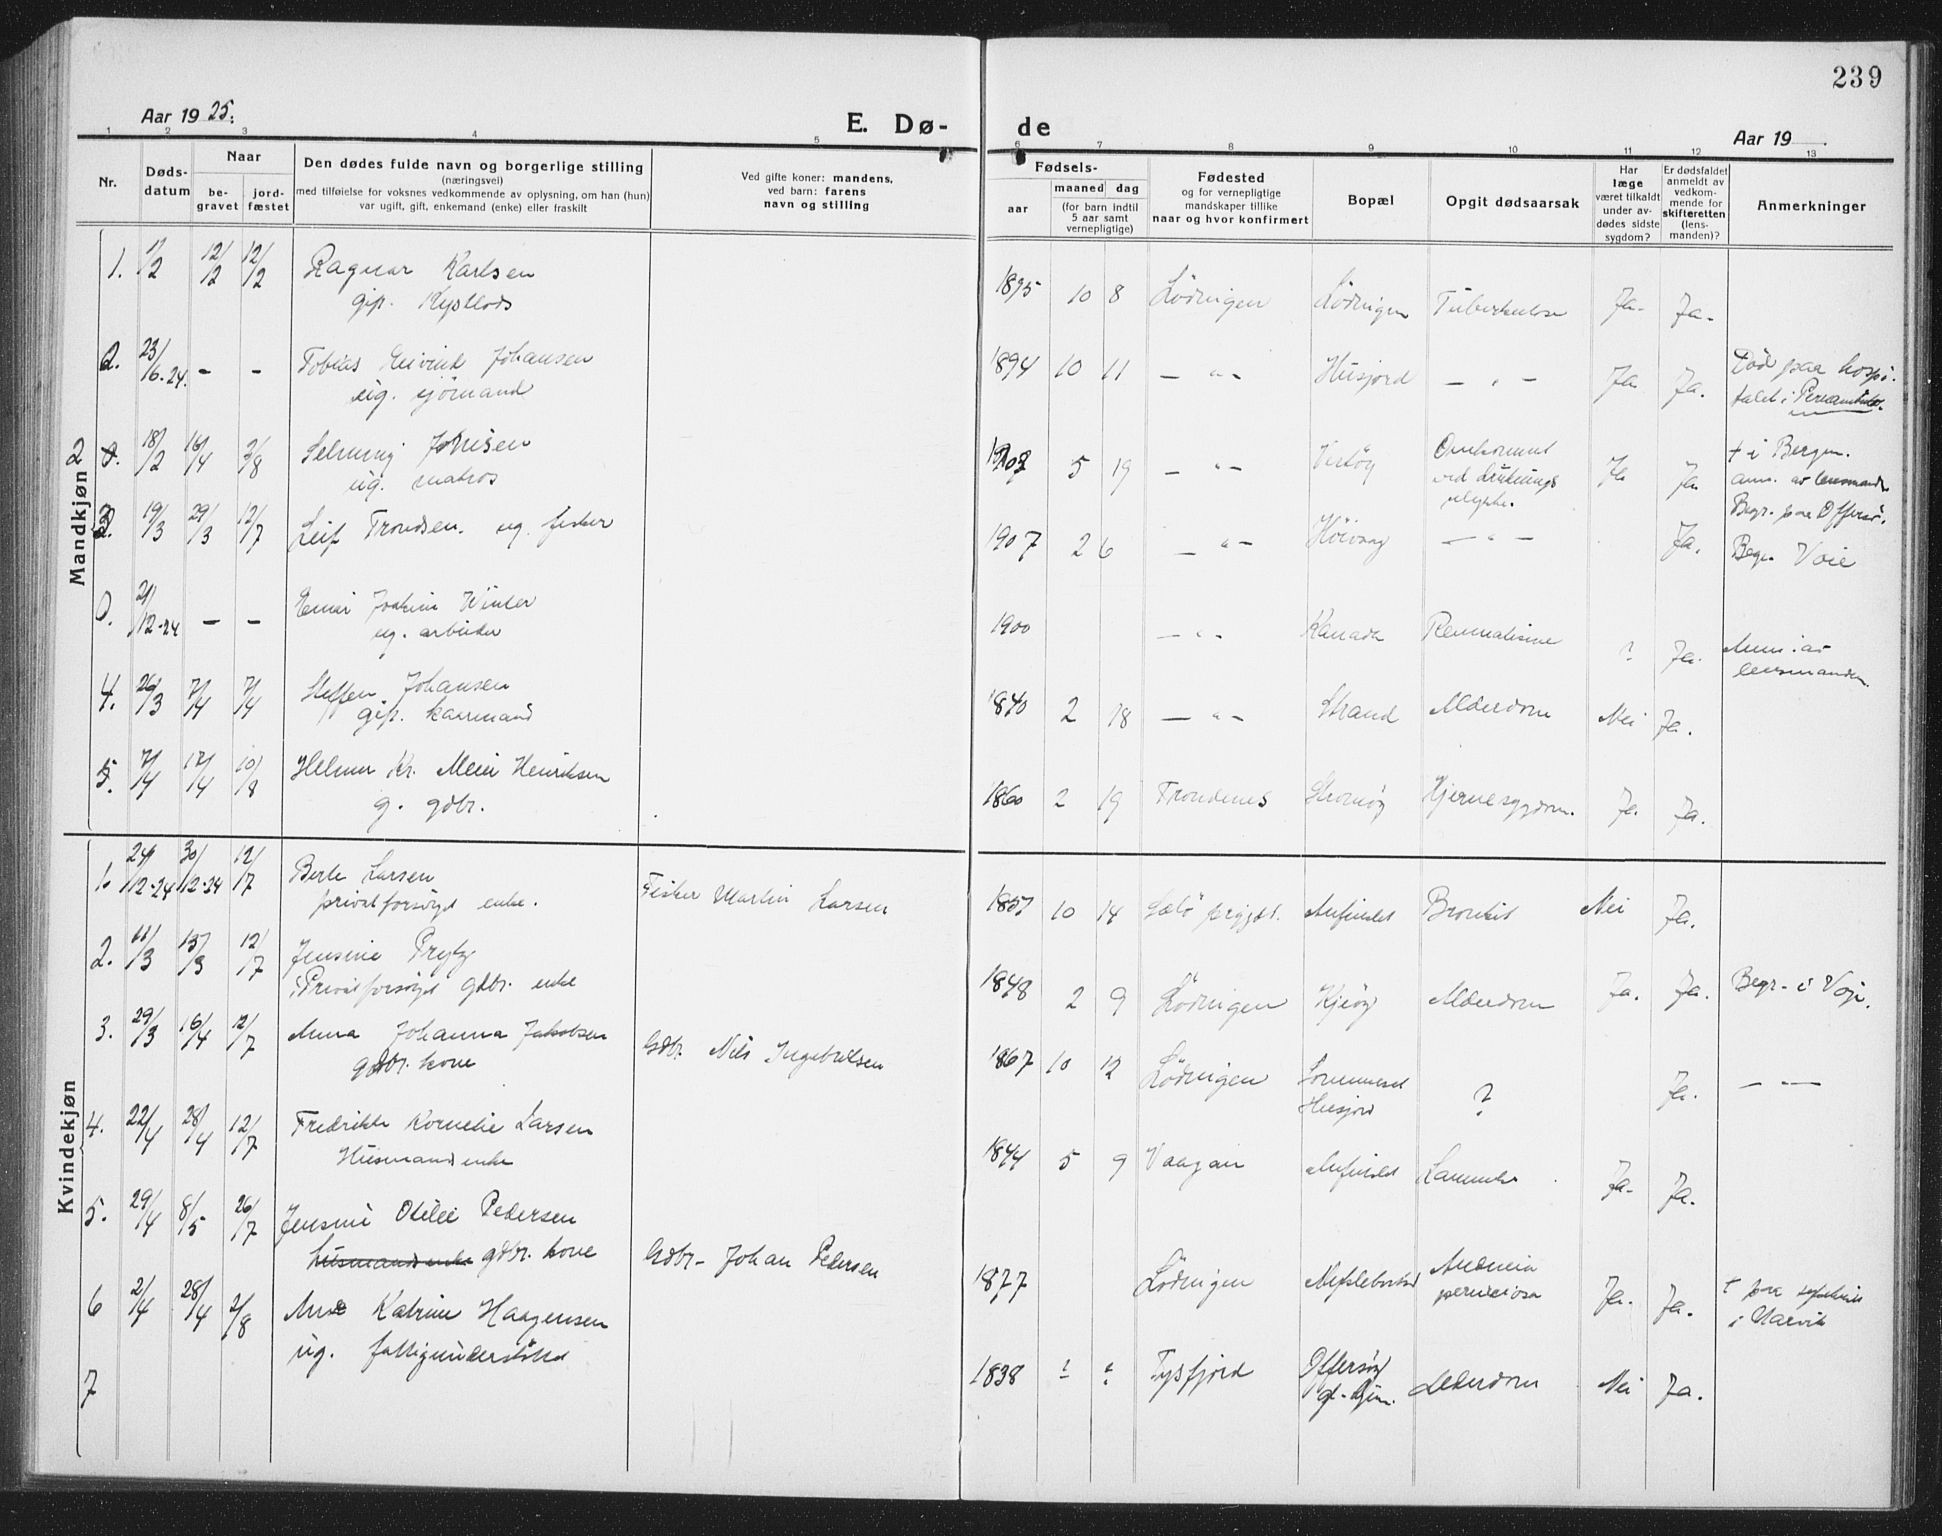 239
Aar 1925.
E. Dø-
de
Aar 19
1 2 3 4 5 6 7 8 9 10 11 12 13
Nr.
Døds-
datum
Naar
be-
gravet
jord-
fæstet
Den dødes fulde navn og borgerlige stilling
(næringsvei)
med tilføielse for voksnes vedkommende av oplysning, om han (hun)
var ugift, gift, enkemand (enke) eller fraskilt
Ved gifte koner: mandens,
ved barn: farens
navn og stilling
Fødsels-
aar
maaned dag
(for barn indtil
5 aar samt
vernepligtige)
Fødested
og for vernepligtige
mandskaper tillike
naar og hvor konfirmert
Bopæl
Opgit dødsaarsak
Har
læge
været tilkaldt
under av-
dødes sidste
sygdom?
Er dødsfaldet
anmeldt av
vedkom-
mende for
skifteretten
(lens-
manden)?
Anmerkninger
Mandkjøn
1. 12/2 12/2 Ragnar Karlsen 1895 10 8 Lødingen Lødingen Tuberkulose Ja. Ja.
gift.
23/6-24. - - Tobias Eivind Johansen 1894 10 11 - " - Husjord - " - Ja Ja. Død paa hospi-
ug. sjømand talet i
18/2 16/4 3/8 5 19 - " - Omkommet Ja Ja + i Bergen.
ug. matros ved druknings anm. av lensmanden
ulykke. Begr. paa Offersø.
19/3 29/3 12/7 Leif Trondsen. ug. fisker 1907 2 6 - " - - " - Ja. Begr. Voie
0. 21/12-24 - - Joakim Winter 1900 - " - Kanada ? Ja. Anm. av
ug. arbeider lensmanden.
4. 26/3 7/4 7/4 Steffen Johansen 1840 2 18 - " - Strand Alderdom Nei Ja.
gift. kaarmand
5. 7/4 17/4 10/8 Helmer Kr. Meier Henriksen 1860 2 19 Trondenes Hjernesygdom. Ja. Ja.
g. gdbr.
Kvindekjøn
1. 24/12-24 30/12-24 12/7 Berte Larsen Fisker Martin Larsen 1857 10 14 Bronkit Nei Ja.
privatforsørget enke.
2. 11/3 12/7 Jensine Prytz 1848 2 9 Lødingen Kjeøy Alderdom Ja. Ja. Begr. i Voje.
Privatforsørget gdbr. enke
3. 29/3 16/4 12/7 Anna Johanna Jakobsen Gdbr. Nils Ingebrigtsen 1867 10 12 Lødingen ? Ja. - -
gdbr. kone Husjord
4. 22/4 28/4 12/7 Fredrikke Kornelie Larsen 1844 5 9 Vaagan Ja. Ja.
Husmandsenke
5. 29/4 8/5 26/7 Jensine Otilie Pedersen Gdbr. Johan Pedersen 1877 Lødingen Ja. Ja. † paa sykehus
husmandsenke gdbr. kone perniciosa i Narvik
6 2/4 28/4 2/8 Ane Katrine Haagensen 1838 ? ? Tysfjord Offersøy Alderdom Nei Ja.
ug. fattigunderstøttet
7